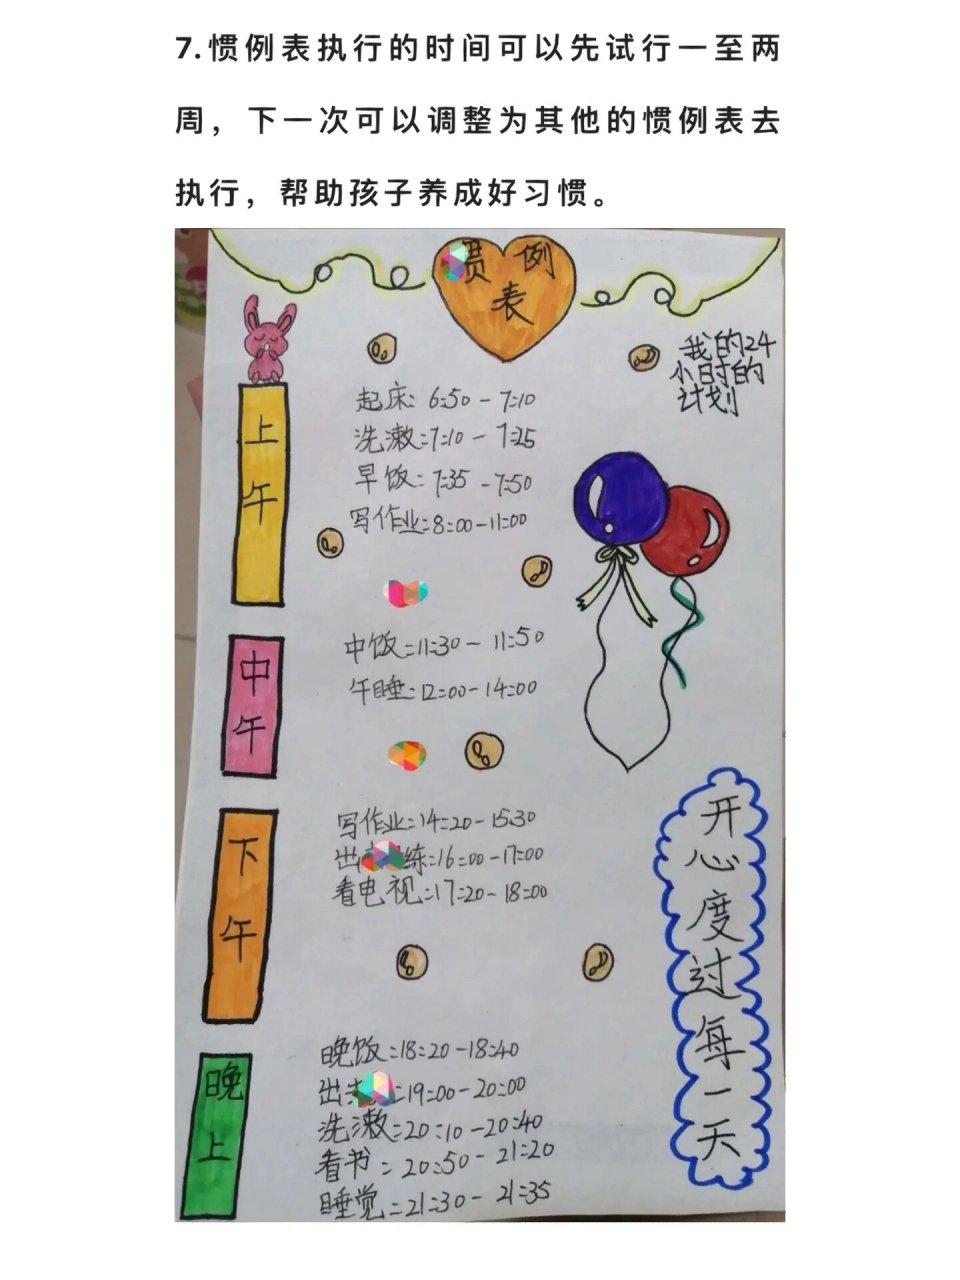 7.惯例表执行的时间可以先试行一至两
周，下一次可以调整为其他的惯例表去
执行，帮助孩子养成好习惯。
惯例
表
我的24
小时的
计划
上午
起床：6:50-7:10
洗漱：7:10-7:25
早饭：7:35-7:50
写作业：8:00-11:00
中午
中饭：11:30-11:50
午睡：12:00-14:00
下午
写作业：14:20-15:30
出 练：16:00-17:00
看电视：17:20-18:00
晚上
晚饭：18:20-18:40
出 ：19:00-20:00
洗漱：20:10-20:40
看书：20:50-21:20
睡觉：21:30-21:35
开心度过每一天